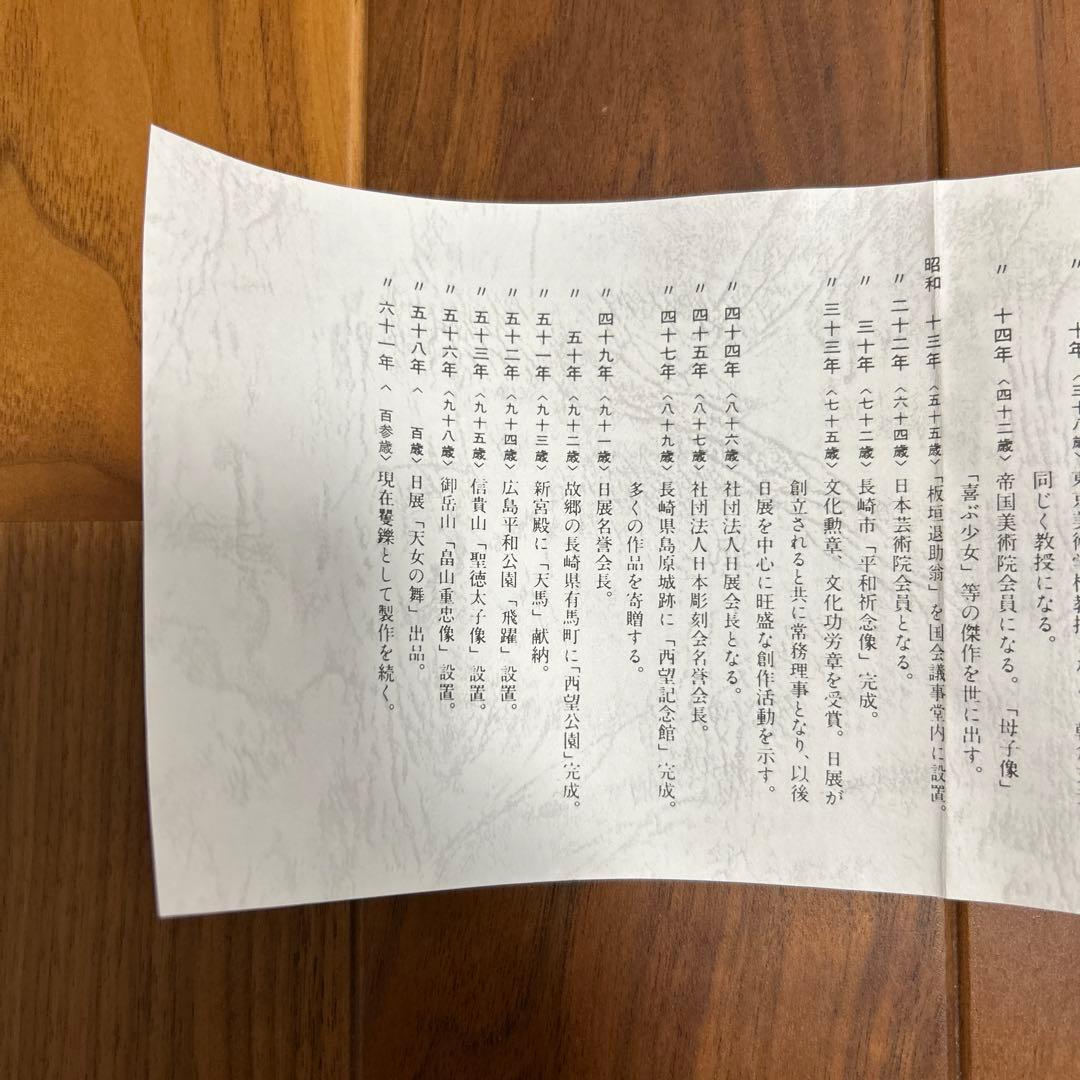 〃 十年〈三十八歳〉東京美術学校教授
同じく教授になる。
〃 十四年〈四十二歳〉帝国美術院会員になる。「母子像」
「喜ぶ少女」等の傑作を世に出す。
昭和 十三年〈五十五歳〉「板垣退助翁」を国会議事堂内に設置。
〃 二十二年〈六十四歳〉日本芸術院会員となる。
〃 三十年〈七十二歳〉長崎市「平和祈念像」完成。
〃 三十三年〈七十五歳〉文化勲章、文化功労章を受賞。日展が
創立されると共に常務理事となり、以後
日展を中心に旺盛な創作活動を示す。
〃 四十四年〈八十六歳〉社団法人日展会長となる。
〃 四十五年〈八十七歳〉社団法人日本彫刻会名誉会長。
〃 四十七年〈八十九歳〉長崎県島原城跡に「西望記念館」完成。
多くの作品を寄贈する。
〃 四十九年〈九十一歳〉日展名誉会長。
〃 五十年〈九十二歳〉故郷の長崎県有馬町に「西望公園」完成。
〃 五十一年〈九十三歳〉新宮殿に「天馬」献納。
〃 五十二年〈九十四歳〉広島平和公園「飛躍」設置。
〃 五十三年〈九十五歳〉信貴山「聖徳太子像」設置。
〃 五十六年〈九十八歳〉御岳山「畠山重忠像」設置。
〃 五十八年〈 百歳〉日展「天女の舞」出品。
〃 六十一年〈 百参歳〉現在矍鑠として製作を続く。